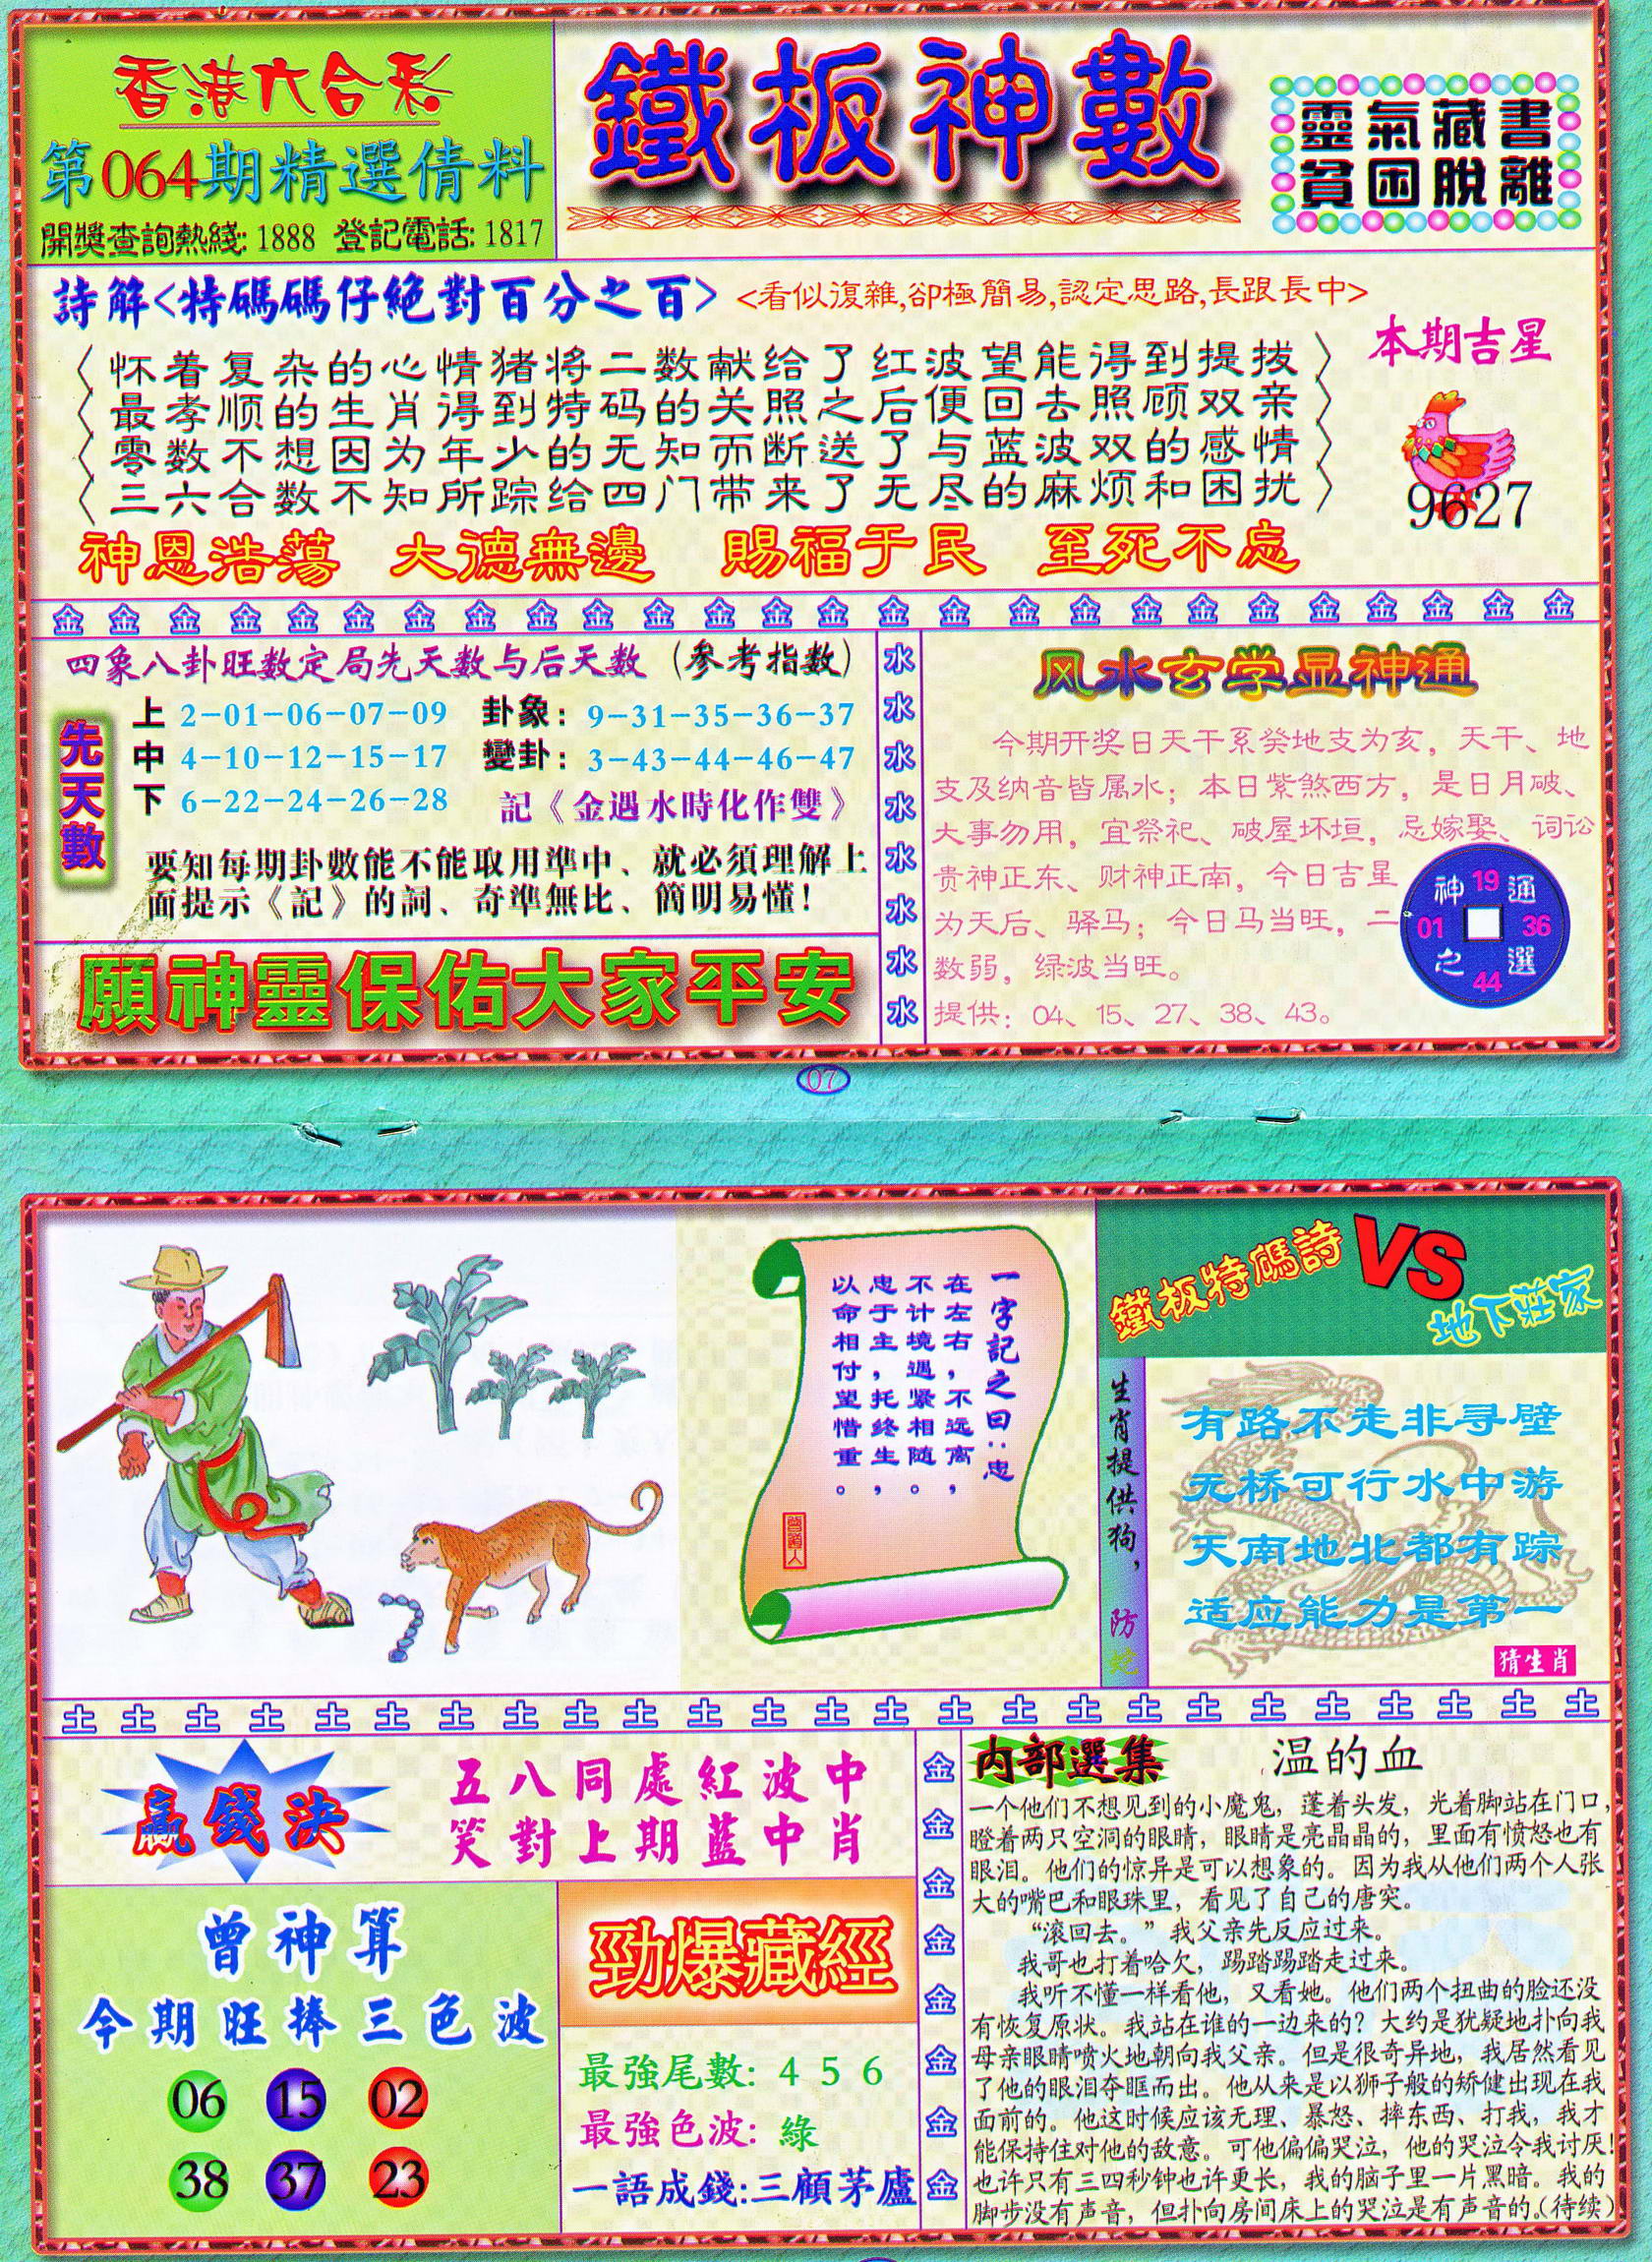 香港六合彩
第064期精選倩料
開獎查詢熱綫: 1888 登記電話: 1817
鐵板神數
靈氣藏書
貧困脫離
詩解<特碼碼仔絕對百分之百>
<看似復雜,卻極簡易,認定思路,長跟長中>
怀着复杂的心情猪将二数献给了红波望能得到提拔
最孝顺的生肖得到特码的关照之后便回去照顾双亲
零数不想因为年少的无知而断送了与蓝波双的感情
三六合数不知所踪给四门带来了无尽的麻烦和困扰
本期吉星
9627
神恩浩蕩 大德無邊 賜福于民 至死不忘
金 金 金 金 金 金 金 金 金 金 金 金 金 金 金 金 金 金 金 金 金 金 金 金 金 金
四象八卦旺数定局先天数与后天数 (参考指数)
先天數
上 2-01-06-07-09 卦象: 9-31-35-36-37
中 4-10-12-15-17 變卦: 3-43-44-46-47
下 6-22-24-26-28 記《金遇水時化作雙》
要知每期卦數能不能取用準中、就必須理解上
面提示《記》的詞、奇準無比、簡明易懂!
願神靈保佑大家平安
水
水
水
水
水
水
水
水
风水玄学显神通
今期开奖日天干系癸地支为亥,天干、地
支及纳音皆属水;本日紫煞西方,是日月破、
大事勿用,宜祭祀、破屋坏垣,忌嫁娶、词讼
贵神正东、财神正南,今日吉星
为天后、驿马;今日马当旺,二
数弱,绿波当旺。
提供: 04、15、27、38、43。
神 19 通
01 36
之 44 選
07
一字記之曰:忠
在左右,不远离,
不计境遇紧相随。
忠于主,托终生,
以命相付望惜重。
鐵板特碼詩 VS 地下莊家
生肖提供狗,防蛇
有路不走非寻壁
无桥可行水中游
天南地北都有踪
适应能力是第一
猜生肖
土 土 土 土 土 土 土 土 土 土 土 土 土 土 土 土 土 土 土 土 土 土 土 土 土
贏錢決
五八同處紅波中
笑對上期藍中肖
曾神算
今期旺捧三色波
06 15 02
38 37 23
勁爆藏經
最強尾數: 4 5 6
最強色波: 綠
一語成錢:三顧茅廬
金
金
金
金
金
金
金
金
内部選集 温的血
一个他们不想见到的小魔鬼,蓬着头发,光着脚站在门口,
瞪着两只空洞的眼睛,眼睛是亮晶晶的,里面有愤怒也有
眼泪。他们的惊异是可以想象的。因为我从他们两个人张
大的嘴巴和眼珠里,看见了自己的唐突。
“滚回去。”我父亲先反应过来。
我哥也打着哈欠,踢踏踢踏走过来。
我听不懂一样看他,又看她。他们两个扭曲的脸还没
有恢复原状。我站在谁的一边来的?大约是犹疑地扑向我
母亲眼睛喷火地朝向我父亲。但是很奇异地,我居然看见
了他的眼泪夺眶而出。他从来是以狮子般的矫健出现在我
面前的。他这时候应该无理、暴怒、摔东西、打我,我才
能保持住对他的敌意。可他偏偏哭泣,他的哭泣令我讨厌!
也许只有三四秒钟也许更长,我的脑子里一片黑暗。我的
脚步没有声音,但扑向房间床上的哭泣是有声音的。(待续)